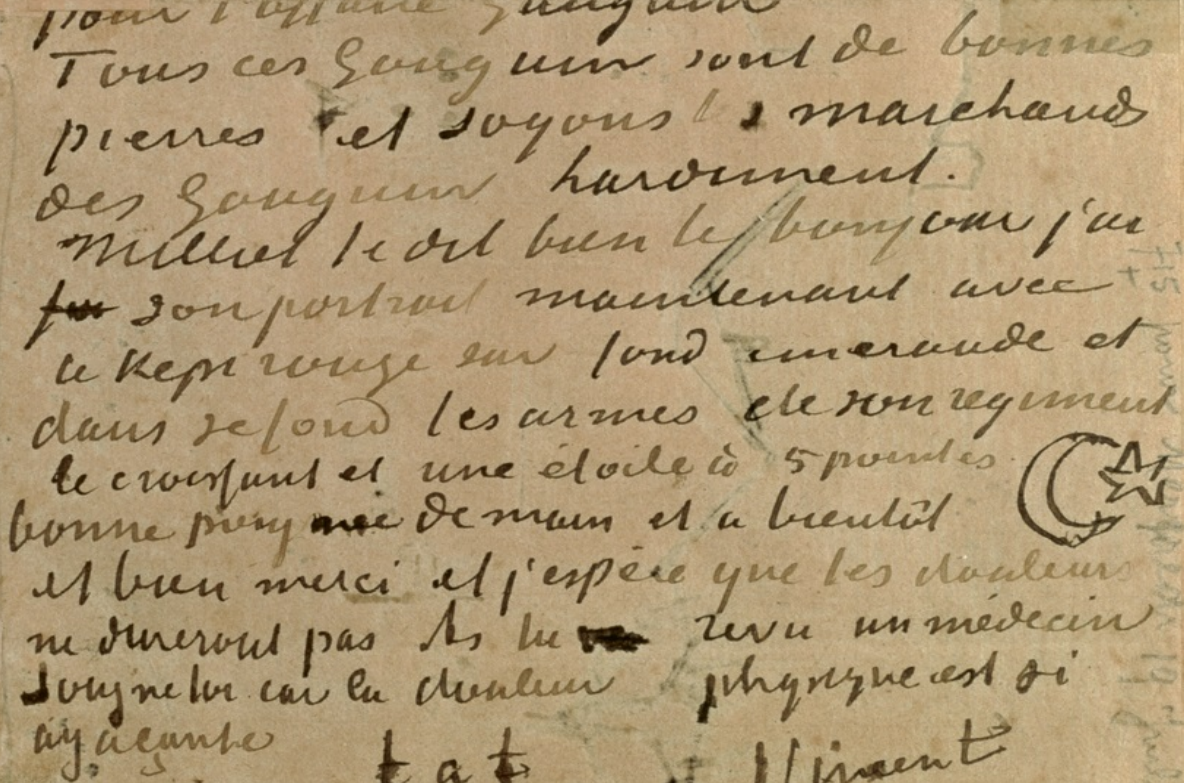 pour l'affaire Gauguin
Tous ces Gauguin sont de bonnes
pierres et soyons les marchands
des Gauguin hardiment.
Milliet te dit bien le bonjour j'ai
son portrait maintenant avec
le kepi rouge sur fond emeraude et
dans ce fond les armes de son regiment
le croissant et une étoile à 5 pointes
bonne poignée de main et a bientôt
et bien merci et j'espère que tes douleurs
ne dureront pas As tu revu un médecin
soigne toi car la douleur physique est si
agaçante
t a t Vincent